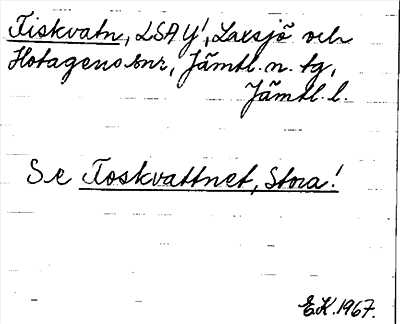 Fiskvatn, LSA Y!, Laxsjö och
Hotagens snr, Jämtl. n. tg,
Jämtl. l.
Se Foskvattnet, Stora!
E.K. 1967.